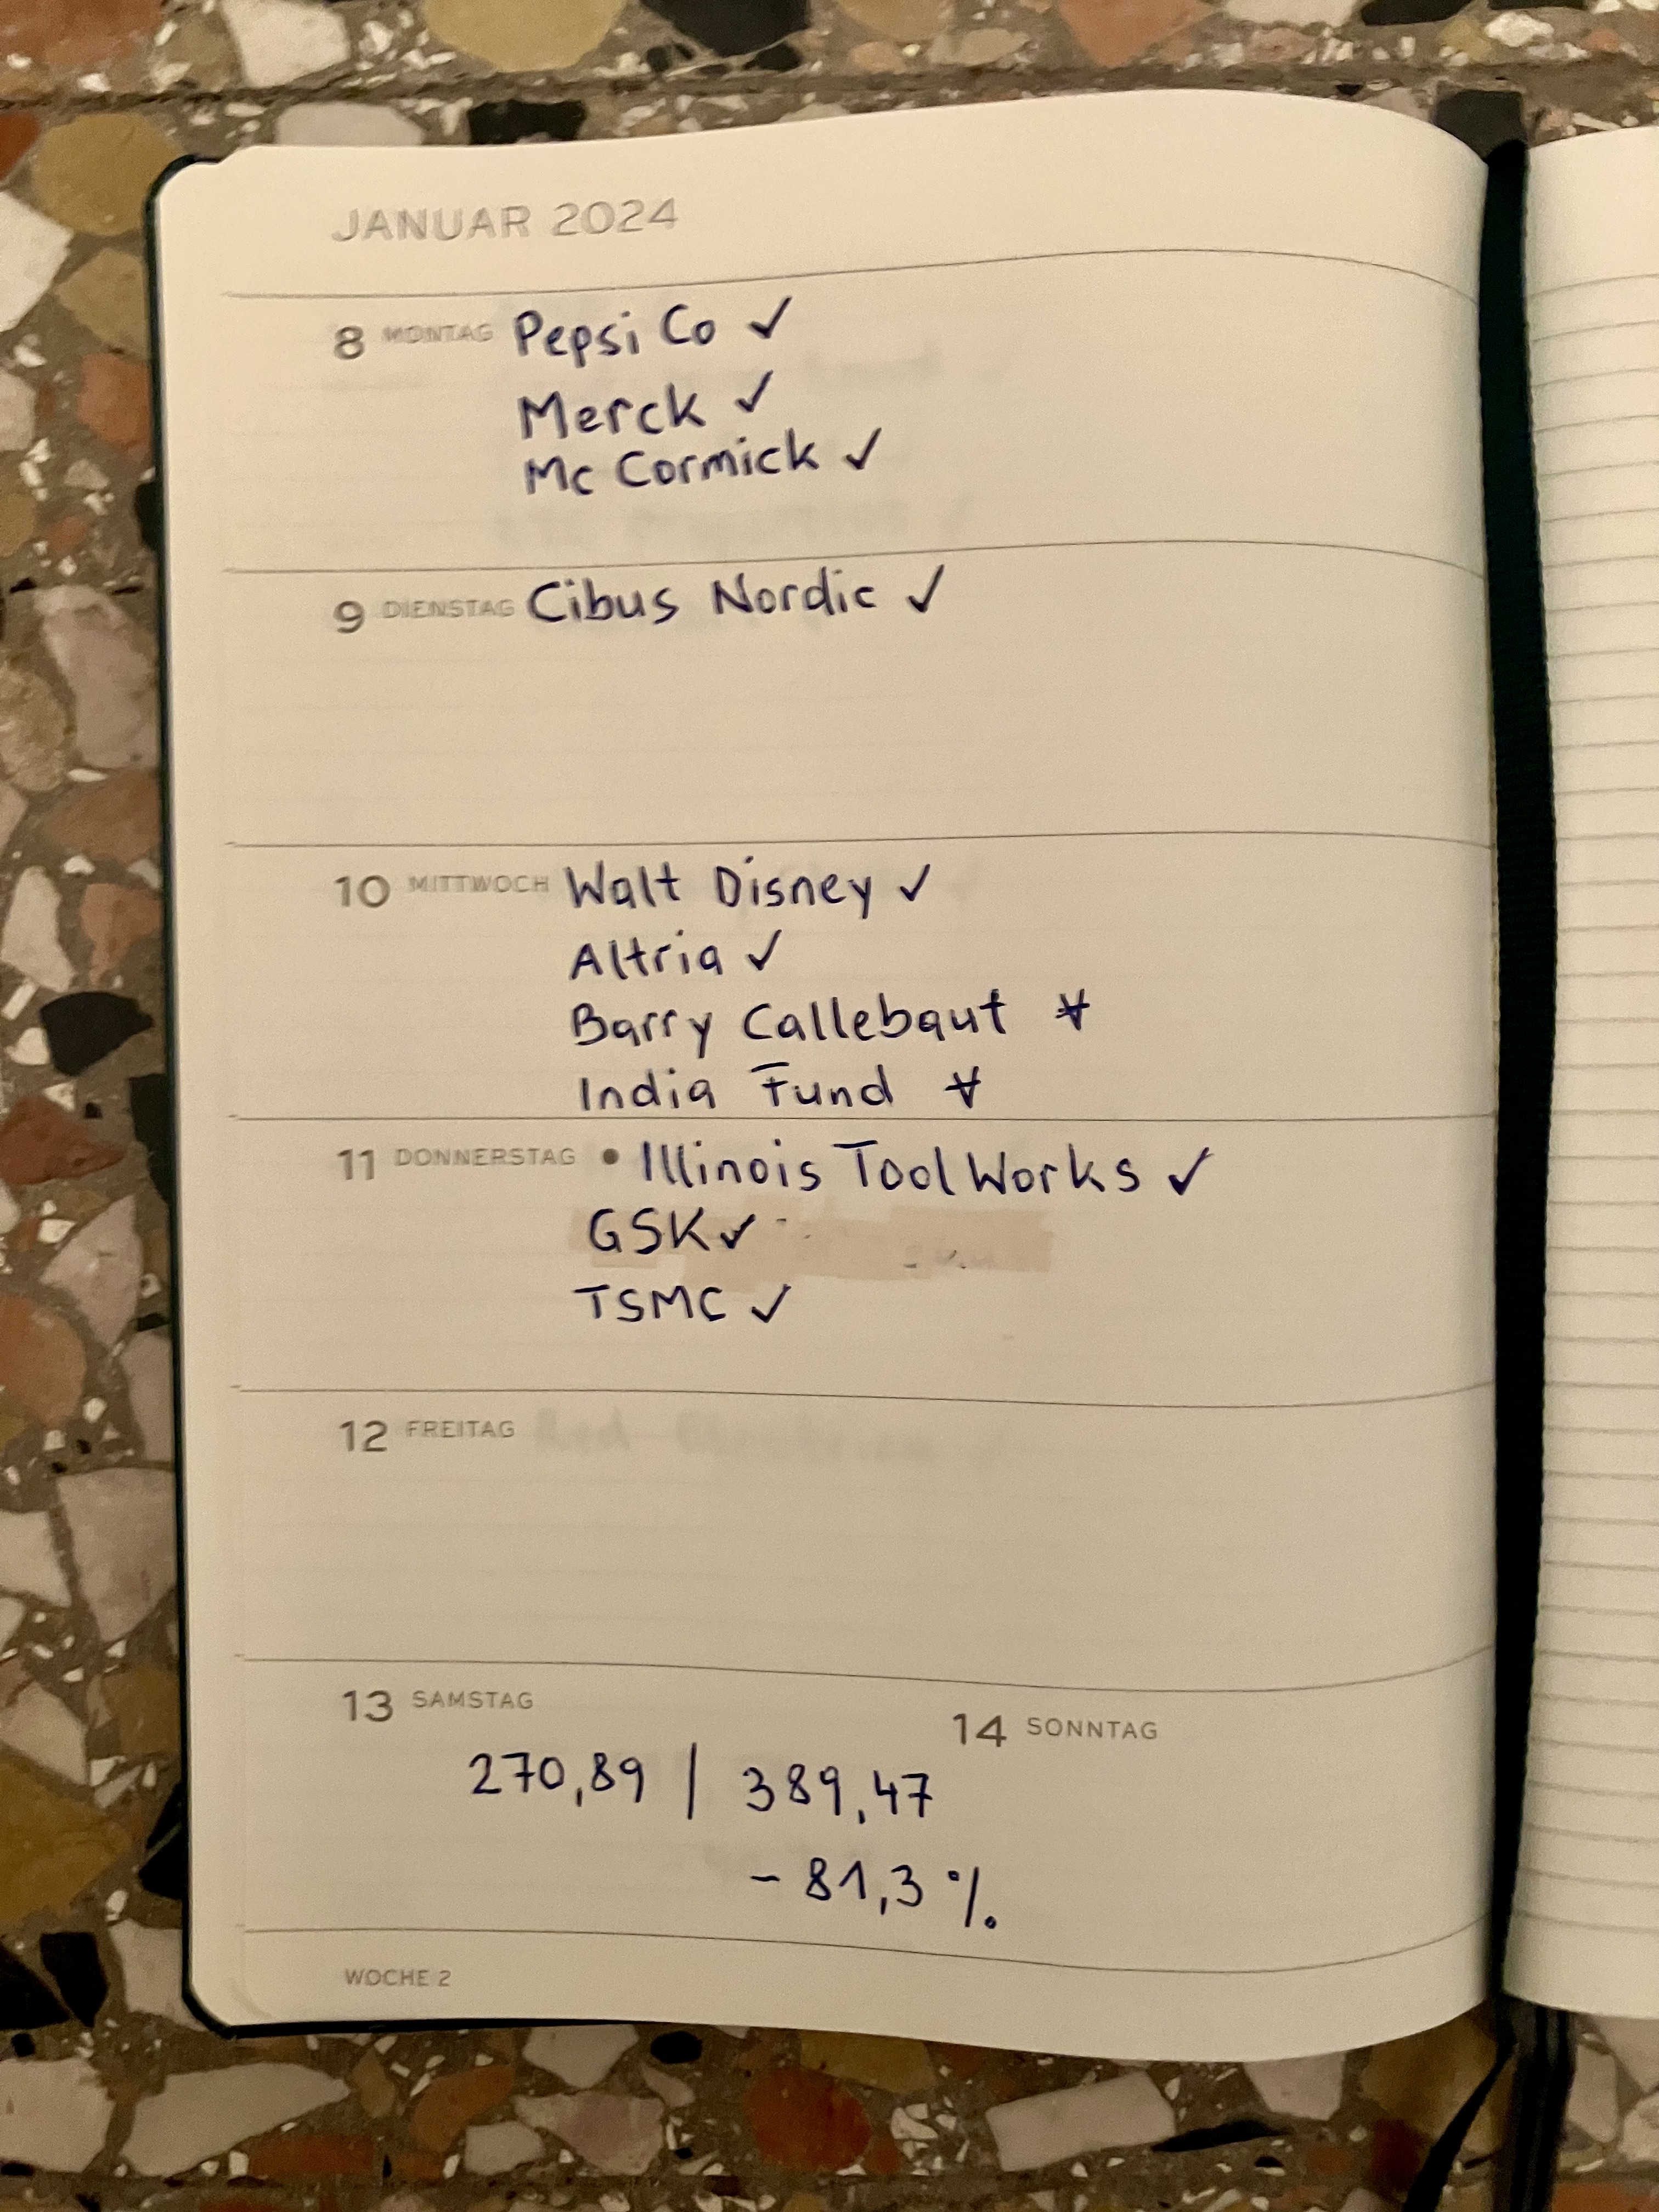 JANUAR 2024
8 MONTAG Pepsi Co ✓
Merck ✓
Mc Cormick ✓
9 DIENSTAG Cibus Nordic ✓
10 MITTWOCH Walt Disney ✓
Altria ✓
Barry Callebaut
India Fund
11 DONNERSTAG • Illinois Tool Works ✓
GSK ✓
TSMC ✓
12 FREITAG
13 SAMSTAG
14 SONNTAG
270,89 | 389,47
- 81,3 %
WOCHE 2